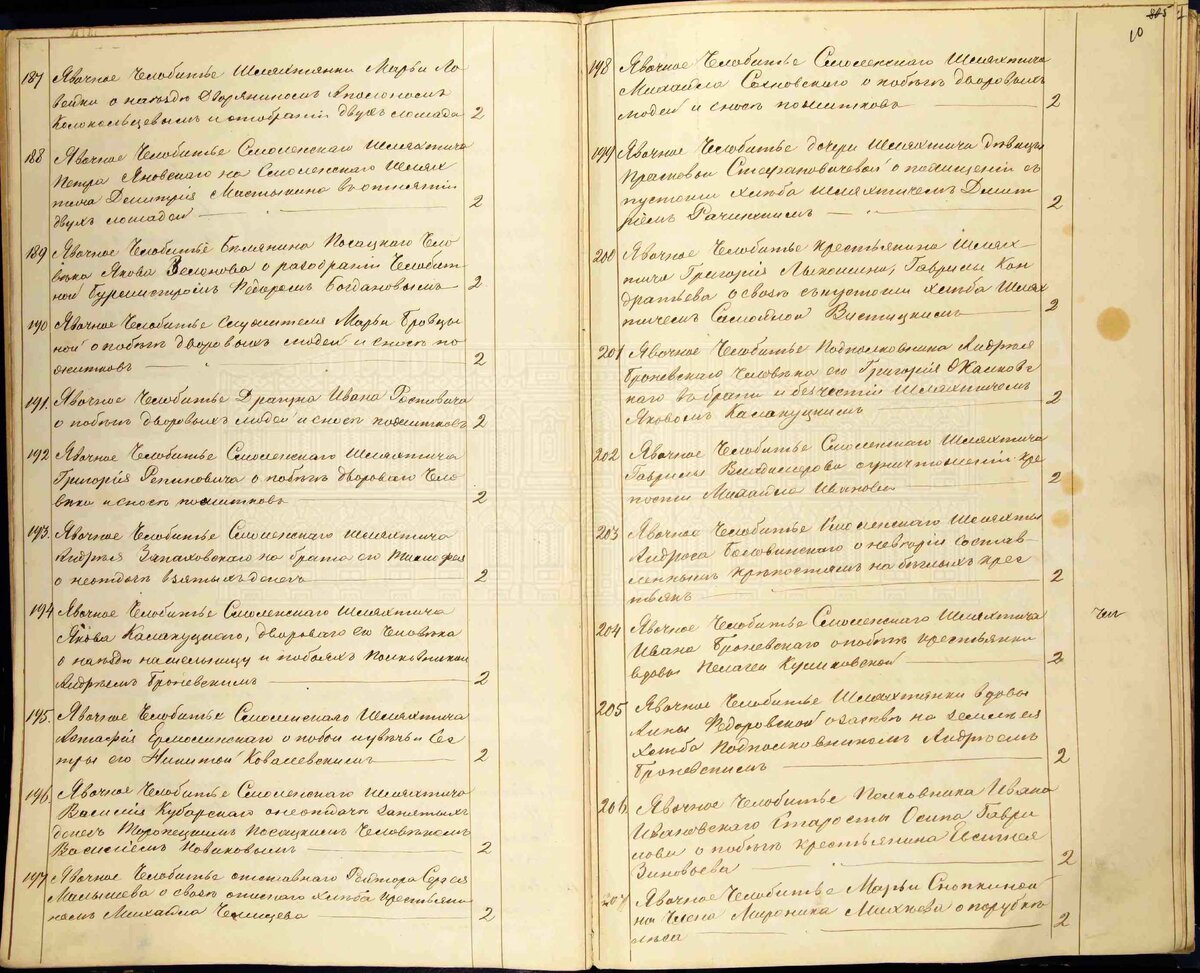 187 Явочное Челобитье Шляхтянки Марьи Ло
вейки о наѣздѣ Дворяниномъ Аполономъ
Колокольцевымъ и отобраніи двухъ лошадей 2
188 Явочное Челобитье Смоленскаго Шляхтича
Петра Яновскаго на Смоленскаго Шлях
тича Дмитрія Мастыкина въ отнятіи
двухъ лошадей 2
189 Явочное Челобитье Бѣлянина Посацкаго Чело
вѣка Якова о разодраніи Челобит
ной Бурмистромъ Ѳедоромъ Богдановымъ 2
190 Явочное Челобитье служителя Марьи Бровцы
ной о побѣгѣ дворовыхъ людей и сносѣ по
житковъ 2
191. Явочное Челобитье Ивана
о побѣгѣ дворовыхъ людей и сносѣ пожитковъ 2
192 Явочное Челобитье Смоленскаго Шляхтича
Григорія Репиновича о побѣгѣ Двороваго Чело
вѣка и сносѣ пожитковъ 2
193. Явочное Челобитье Смоленскаго Шляхтича
Андрея Запаховскаго на брата его
о неотдачѣ взятыхъ денегъ 2
194 Явочное Челобитье Смоленскаго Шляхтича
Якова Калакуцкаго, двороваго его Человѣка
о наѣздѣ на мельницу и побояхъ Полковникомъ
Андреемъ Броневскимъ 2
195. Явочное Челобитье Смоленскаго Шляхтича
Ермолинскаго о побои и увѣчьи Сес
тры его Никитой Ковалевскимъ 2
196. Явочное Челобитье Смоленскаго Шляхтича
Василія Кубарскаго о неотдачѣ занятыхъ
денегъ Торопецкимъ Посацкимъ Человѣкомъ
Василіемъ Новиковымъ 2
197 Явочное Челобитье отставнаго Рейтора Сергея
Малышева о свозѣ хлѣба крестьяни
номъ Михайла 2
10
198 Явочное Челобитье Смоленскаго Шляхтича
Михайла Сосновскаго о побѣгѣ дворовыхъ
людей и сносѣ пожитковъ 2
199 Явочное Челобитье дочери Шляхтича дѣвицы
Прасковьи о похищеніи съ
пустоши хлѣба Шляхтичемъ Дмит
ріемъ Рачинскимъ 2
200 Явочное Челобитье крестьянина Шлях-
тича Григорія Лыкошина, Гаврилы Кон
дратьева о свозѣ съ пустоши хлѣба Шлях
тичемъ Самойлой Вистицкимъ 2
201 Явочное Челобитье Подполковника Андрея
Броневскаго Человѣка его Григорія
каго въ брани и безчестіи Шляхтичемъ
Яковомъ Калакуцкимъ 2
202 Явочное Челобитье Смоленскаго Шляхтича
Гаврилы о уничтоженіи крѣ
пости Михайла Иванова 2
203 Явочное Челобитье Смоленскаго Шляхтича
Головинскаго о невѣріи состав
леннымъ крѣпостямъ на бѣглыхъ крес
тьянъ 2
204 Явочное Челобитье Смоленскаго Шляхтича
Ивана Броневскаго о побѣгѣ крестьянки
вдовы Пелагеи Куликовской 2
205 Явочное Челобитье Шляхтянки вдовы
Анны Ѳедоровской о засѣвѣ на землѣ ея
хлѣба Подполковникомъ Андреемъ
Броневскимъ 2
206 Явочное Челобитье Полковника Ивана
Ивановскаго Старосты Осипа Гаври
лова о побѣгѣ крестьянина
Зиновьева 2
207 Явочное Челобитье Марьи Снопкиной
на Члена Михѣева о порубкѣ
лѣса 2